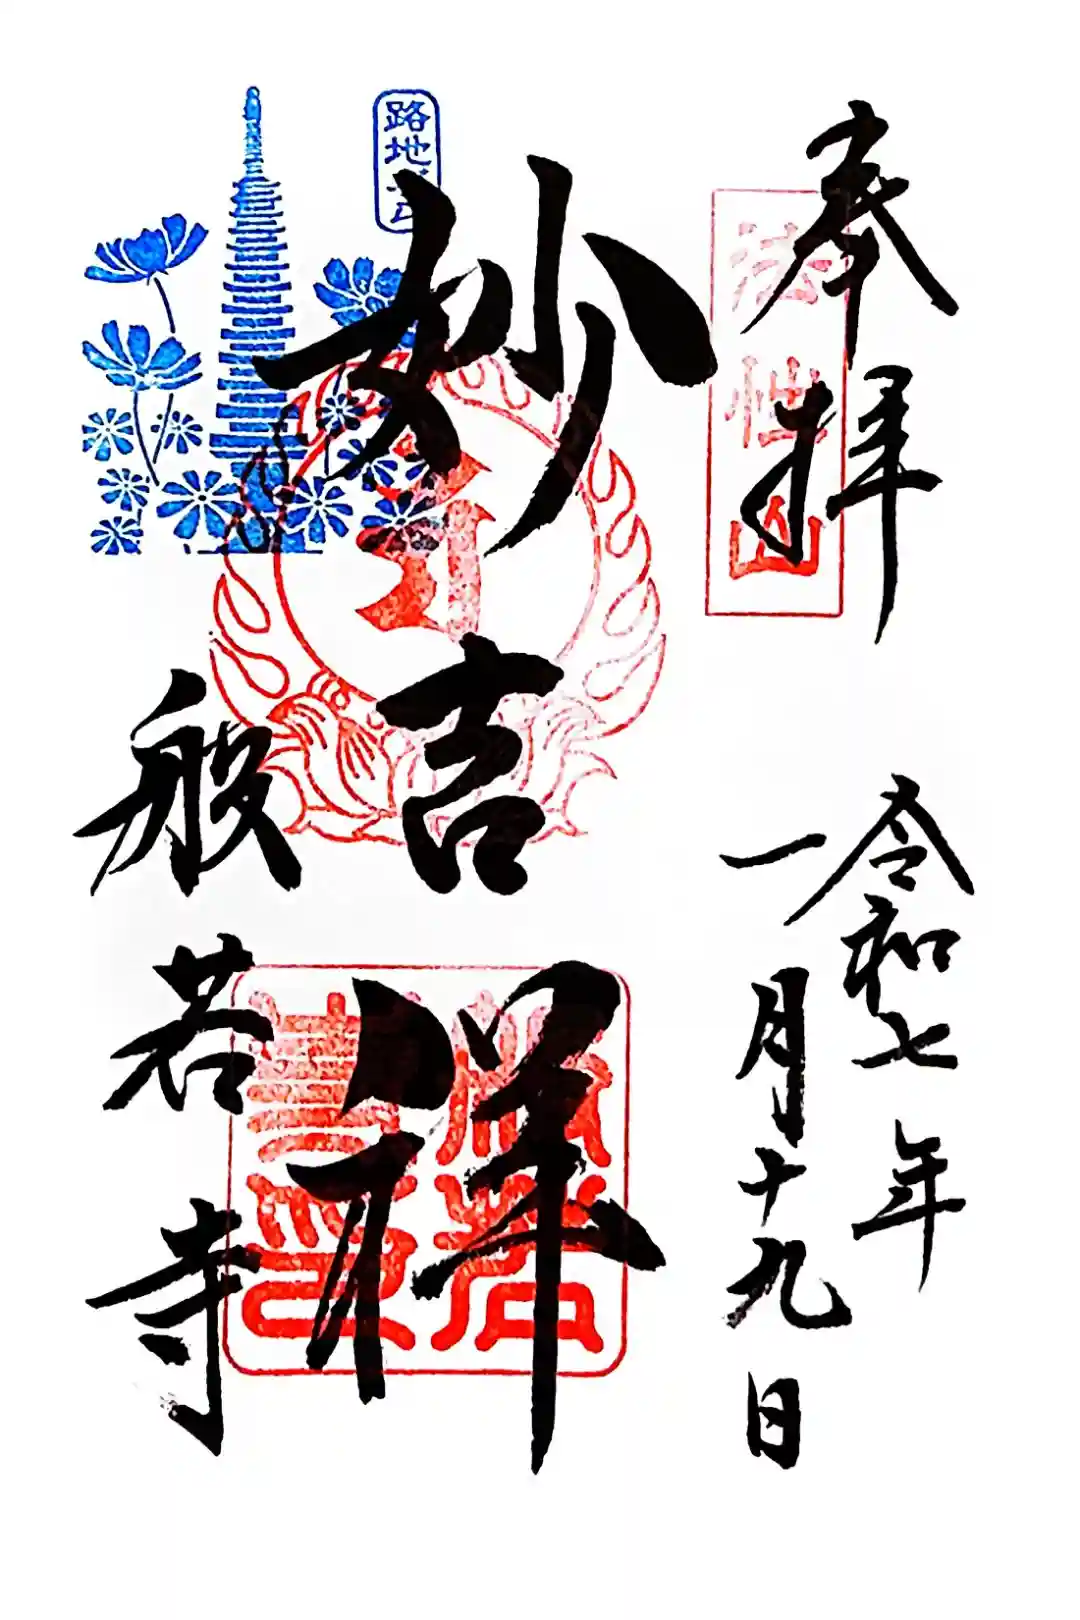 奉拝
法性山
令和七年
一月十九日
妙吉祥
般若寺
路地
般若
臺印